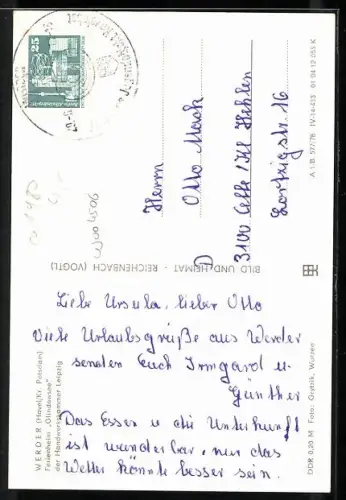 Liebe Ursula, lieber Otto
Viele Urlaubsgrüße aus Werder
senden Euch Irmgard u.
Günther
Das Essen u die Unterkunft
ist wunderbar, nur das
Wetter könnte besser sein.
Herrn
Otto Mook
D 3100 Celle/Kl Hehlen
Lortzigstr. 16
WERDER (Havel/Kr. Potsdam)
Ferienheim „Glindowsee“
der Handwerkskammer Leipzig
BILD UND HEIMAT · REICHENBACH (VOGTL)
A 1/B 577/78 IV-14-483 01 04 12 055 K
DDR 0,20 M Foto: Grytzik, Wurzen
25